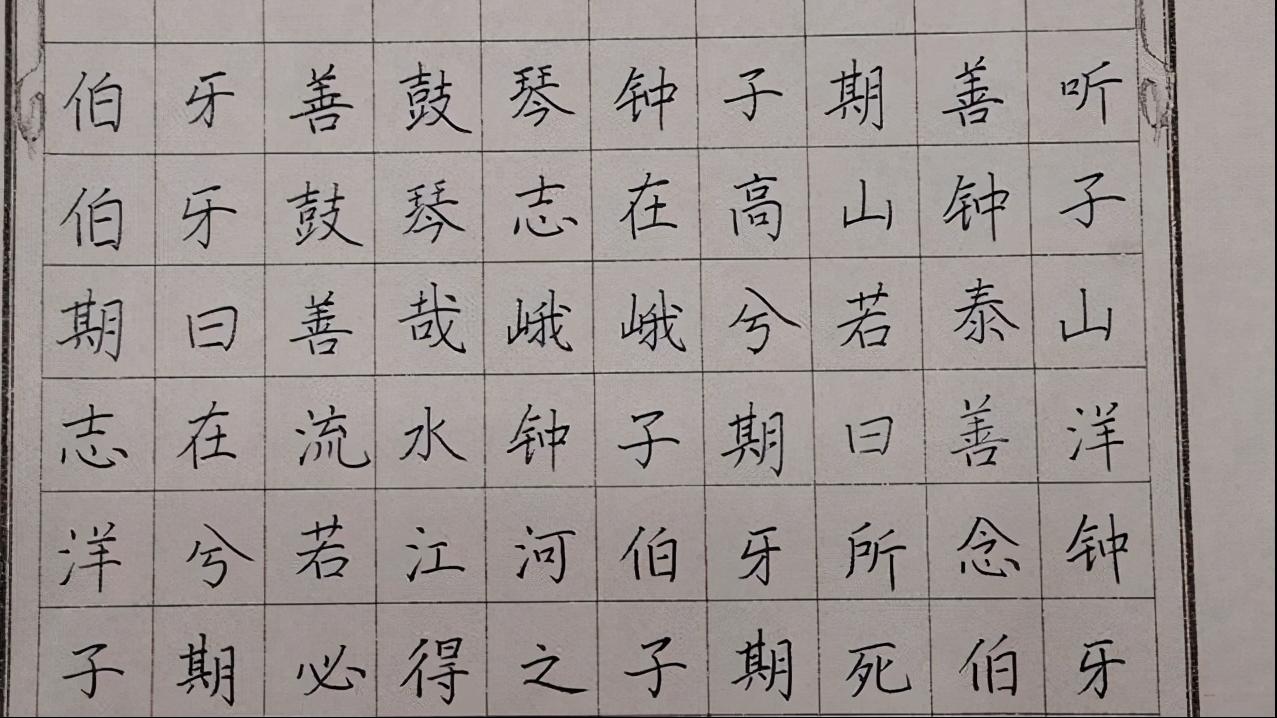 伯牙善鼓琴钟子期善听
伯牙鼓琴志在高山钟子
期曰善哉峨峨兮若泰山
志在流水钟子期曰善洋
洋兮若江河伯牙所念钟
子期必得之子期死伯牙